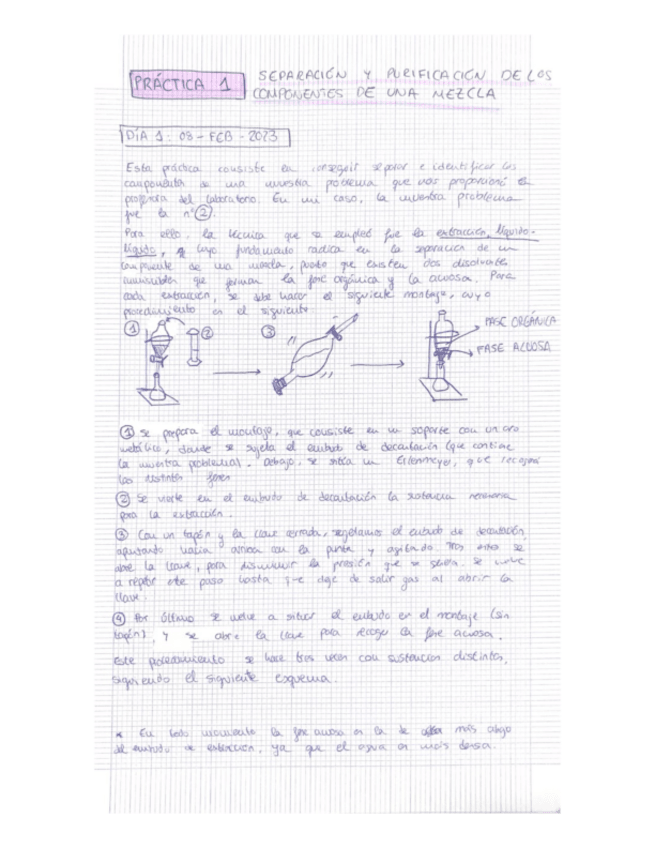 PRÁCTICA 1
SEPARACIÓN Y PURIFICACIÓN DE LOS
COMPONENTES DE UNA MEZCLA
DÍA 1: 08-FEB-2023
Esta práctica consiste en conseguir separar e identificar los
componentes de una muestra problema que nos proporciona la
profesora del laboratorio. En mi caso, la muestra problema
fue la nº 2.
Para ello, la técnica que se empleó fue la extracción líquido-
líquido, cuyo fundamento radica en la separación de un
componente de una mezcla, puesto que existen dos disolventes
inmiscibles que forman la fase orgánica y la acuosa. Para
cada extracción, se debe hacer el siguiente montaje, cuyo
procedimiento es el siguiente:
1 2 3
FASE ORGÁNICA
FASE ACUOSA
1 Se prepara el montaje, que consiste en un soporte con un aro
metálico, donde se sujeta el embudo de decantación (que contiene
la muestra problema). Debajo, se sitúa un Erlenmeyer, que recogerá
las distintas fases
2 Se vierte en el embudo de decantación la sustancia necesaria
para la extracción.
3 Con un tapón y la llave cerrada, sujetamos el embudo de decantación,
apuntando hacia arriba con la punta y agitando. Tras esto se
abre la llave, para disminuir la presión que se genera. Se vuelve
a repetir este paso hasta que deje de salir gas al abrir la
llave.
4 Por último se vuelve a situar el embudo en el montaje (sin
tapón), y se abre la llave para recoger la fase acuosa.
Este procedimiento se hace tres veces con sustancias distintas,
siguiendo el siguiente esquema.
* En todo momento la fase acuosa es la de más abajo
del embudo de extracción, ya que el agua es más densa.